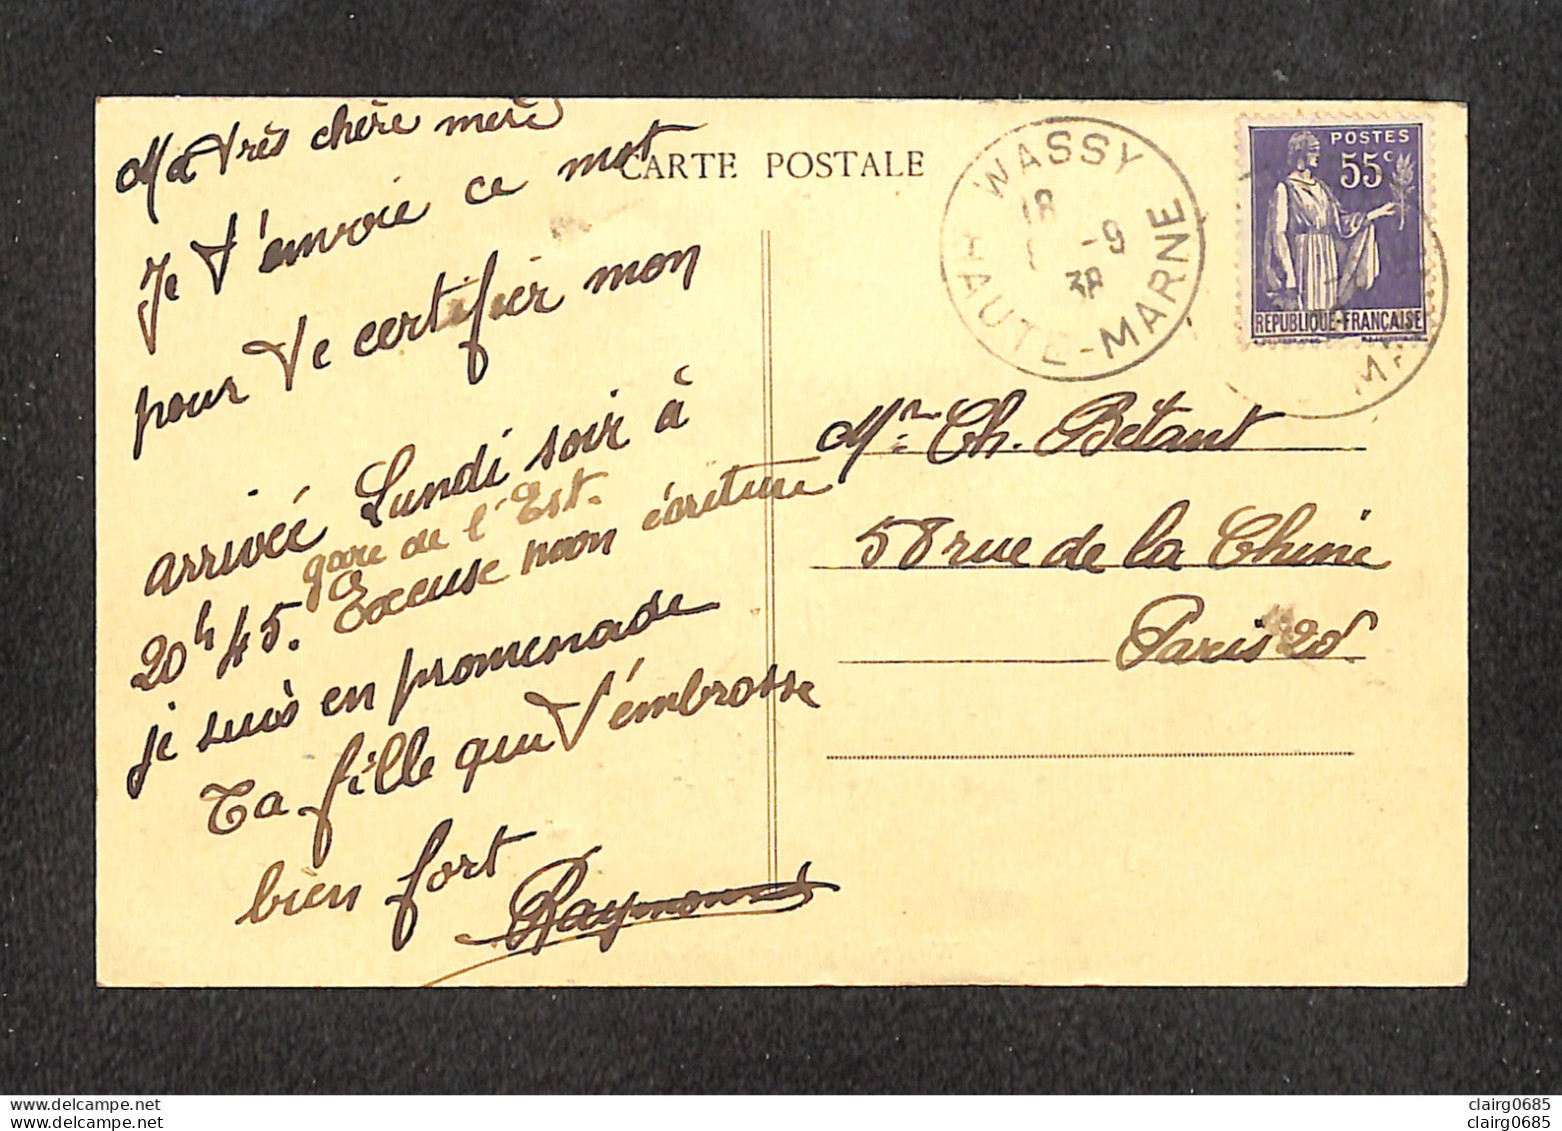 Ma très chère mère
Je t'envoie ce mot
pour te certifier mon
arrivée Lundi soir à
gare de l'Est.
20h 45. Excuse mon écriture
je suis en promenade
Ta fille qui t'embrasse
bien fort
Raymonde
CARTE POSTALE
WASSY
18
-9
38
HAUTE-MARNE
POSTES
55c
REPUBLIQUE-FRANÇAISE
MA
Mme Ch. Bétant
58 rue de la Chine
Paris 20e
delcampe.net
clairg0685
delcampe.net
clairg0685